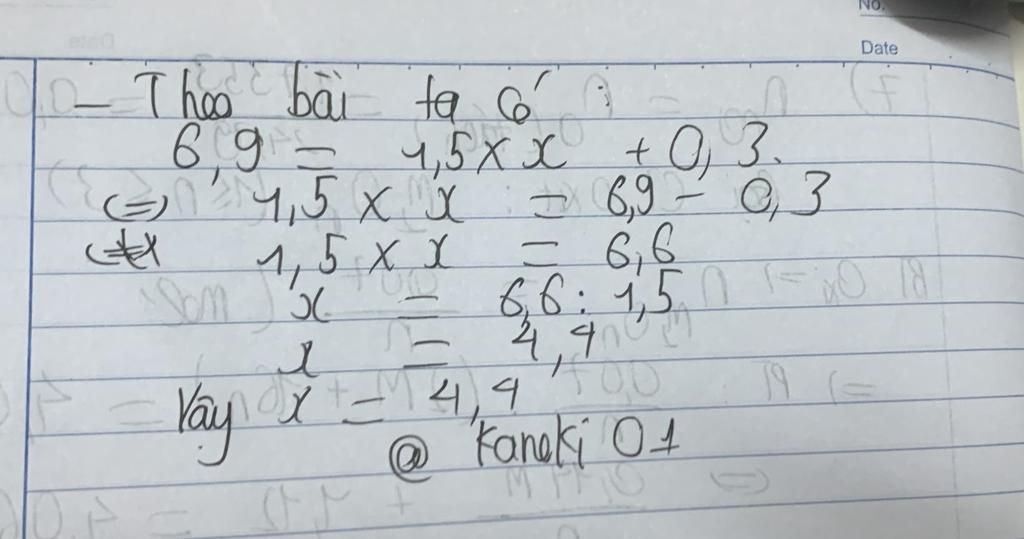 No.
Date
- Theo bài ta có :
6,9 = 1,5 x x + 0,3.
(=) 1,5 x x = 6,9 - 0,3
1,5 x x = 6,6
x = 6,6 : 1,5
x = 4,4
Vậy x = 4,4
@ Kaneki 01